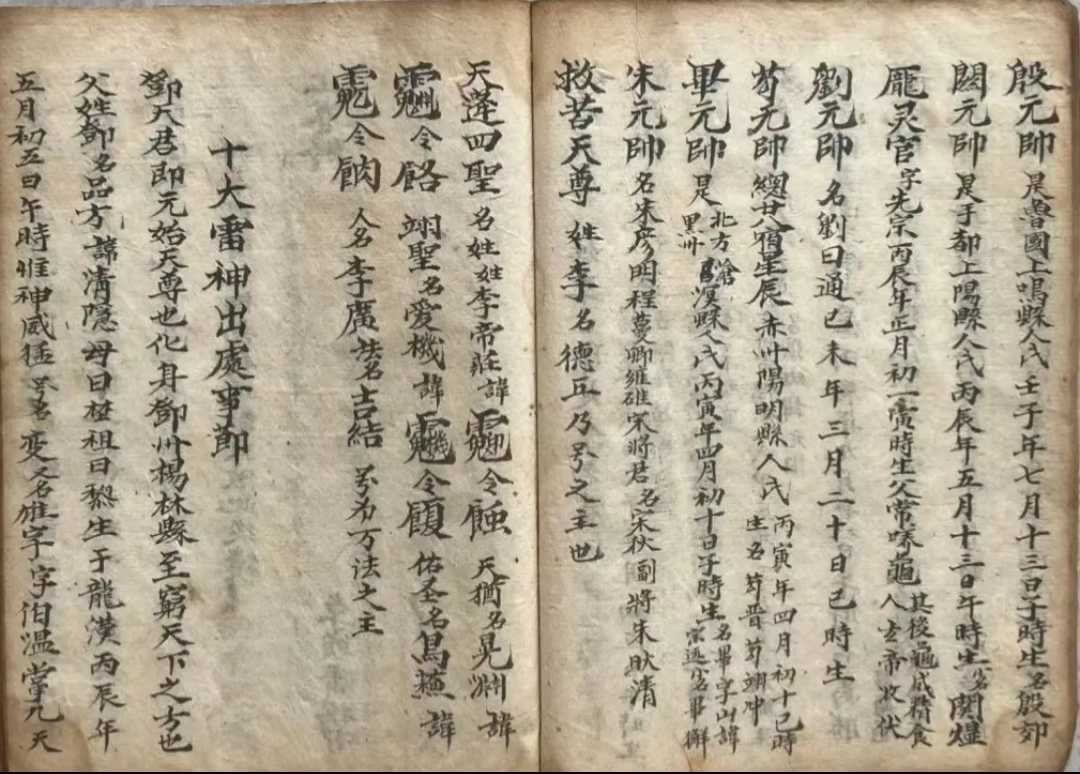 殷元帥 是魯國上鳴縣人氏壬子年七月十三日子時生名殷郊
關元帥 是于都上陽縣人氏丙辰年五月十三日午時生名関
龐灵官 字先宗丙辰年正月初一寅時生父常 其後 食人 帝收伏
劉元帥 名劉曰通己未年三月二十日巳時生
茍元帥 總廿八宿星辰赤卅陽明縣人氏 丙寅年四月初十巳時生名茍晋茍翊冲
畢元帥 是北方黑卅 漢縣人氏丙寅年四月初十日子時生名畢字山諱宗远
朱元帥 名朱彦 程 卿 宋將君名宋秋副將朱 清
救苦天尊 姓李名德 乃 之主也
天蓬四聖 名姓姓李帝莊諱 令 天猶名晃渊諱
令餎 翊聖名爱機諱 令 佑圣名 諱
令 人名李廣法名吉結 万法之主
十大雷神出處事節
鄧天君即元始天尊也化身鄧州楊林縣至窮天下之 也
父姓鄧名品方諱清隠母曰 祖曰黎生于龍漢丙辰年
五月初五日午時惟神威猛 名变名雄字字伯温掌九天